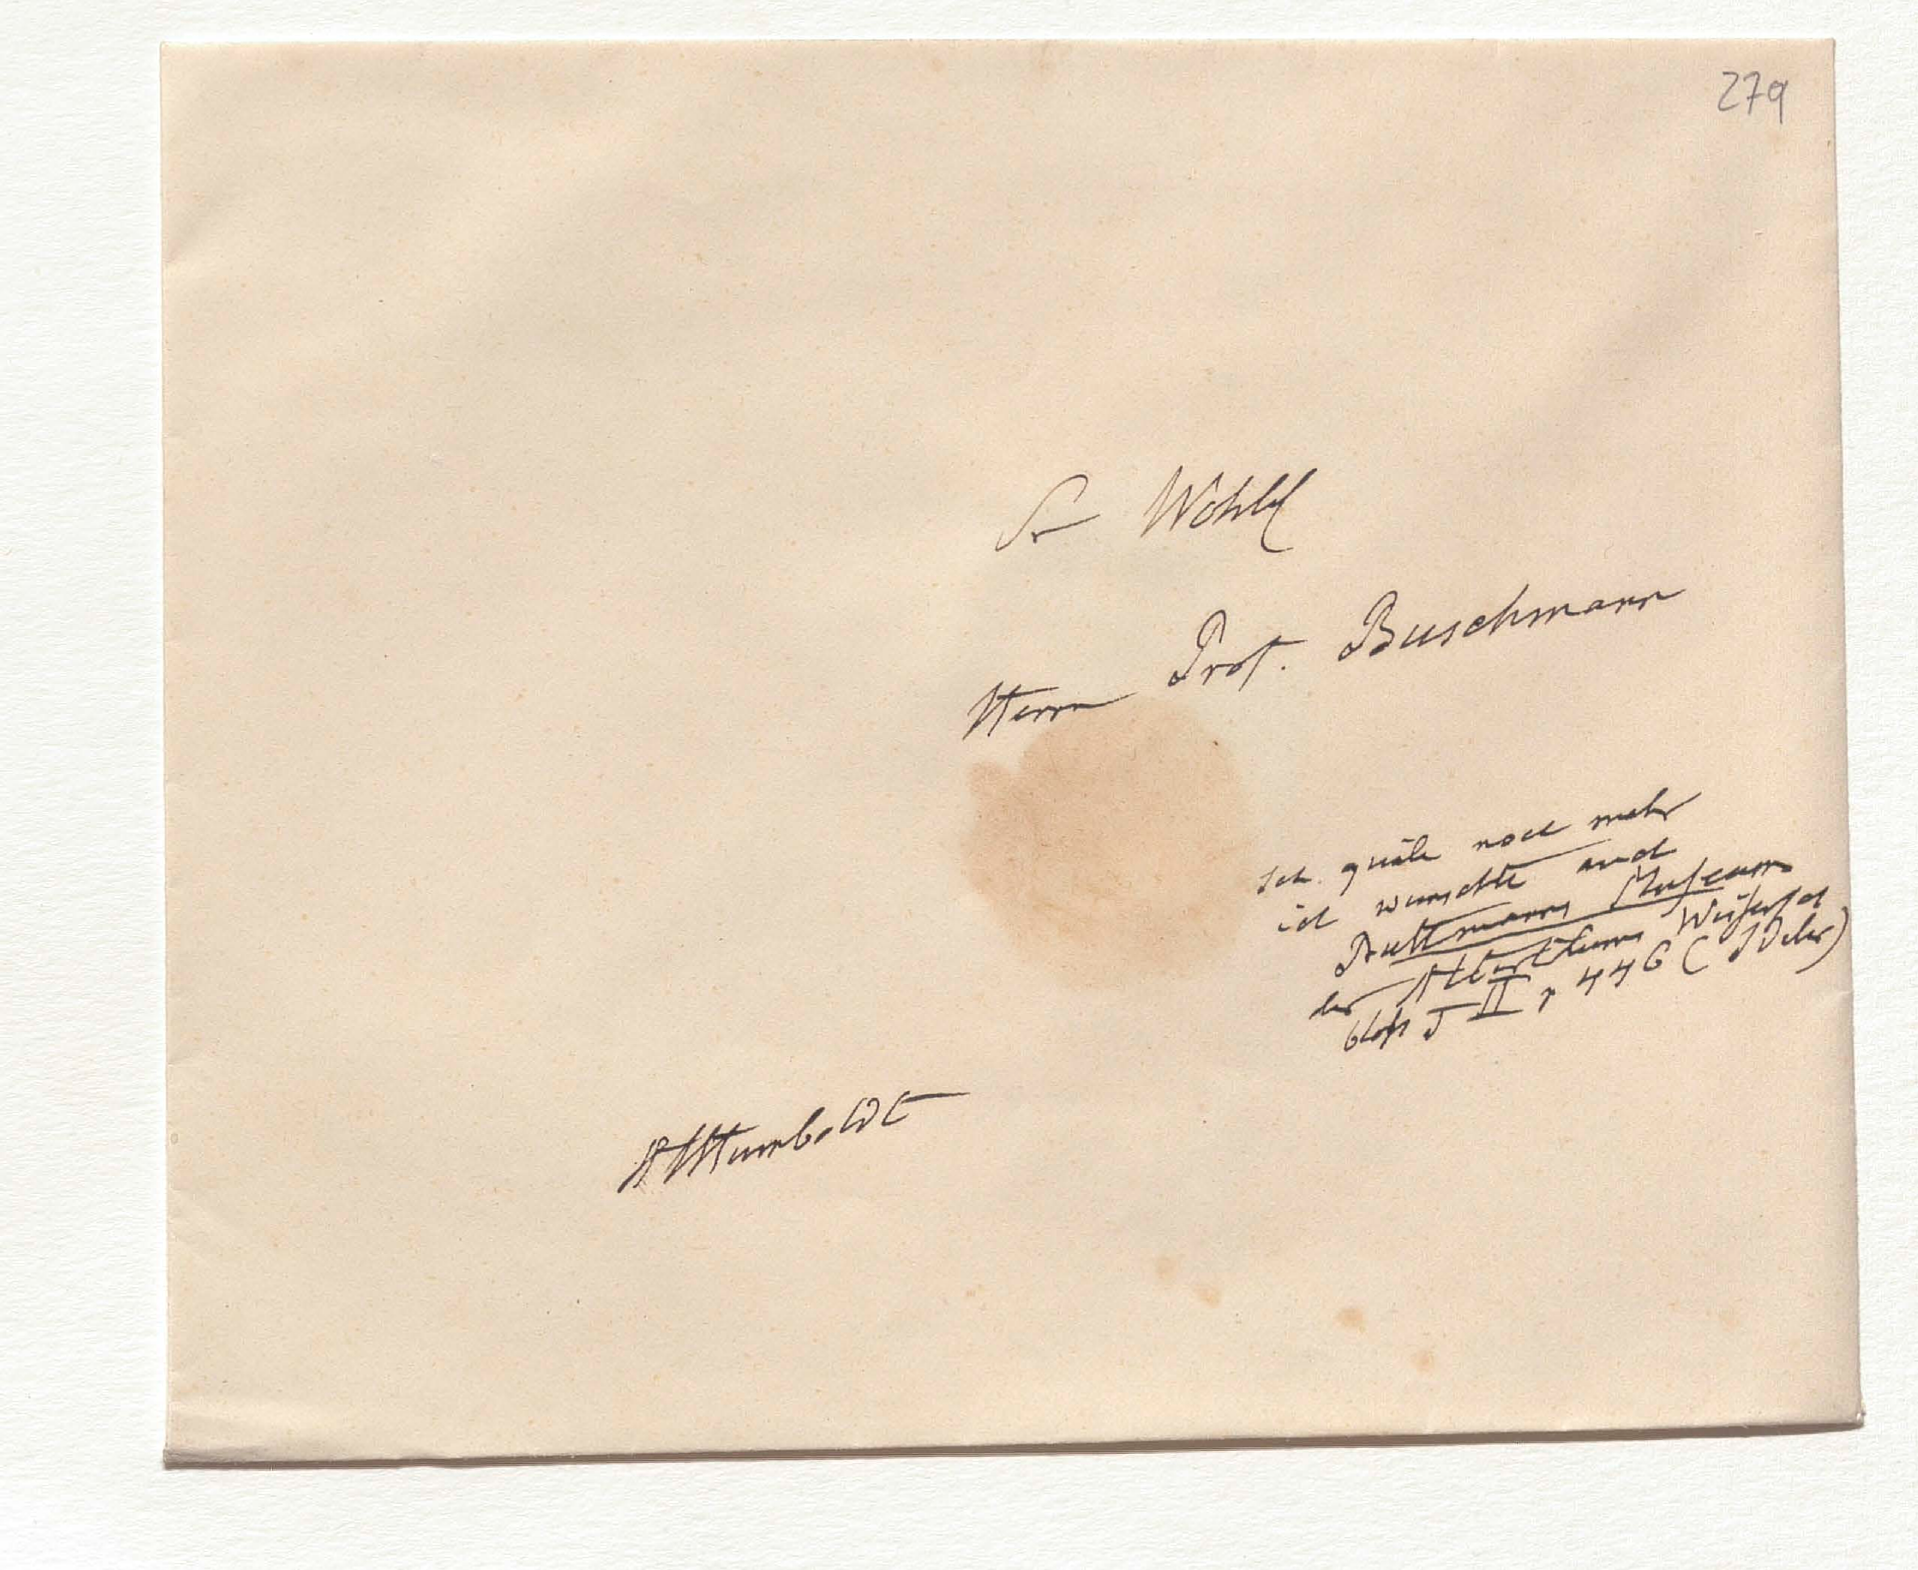 279
Sr Wohlg
Herrn Prof. Buschmann
Ich quäle noch mehr
ich wünschte auch
Buttmanns Museum
der Alterthums Wissensch
bloß T II p 446 (Ideler)
AvHumboldt